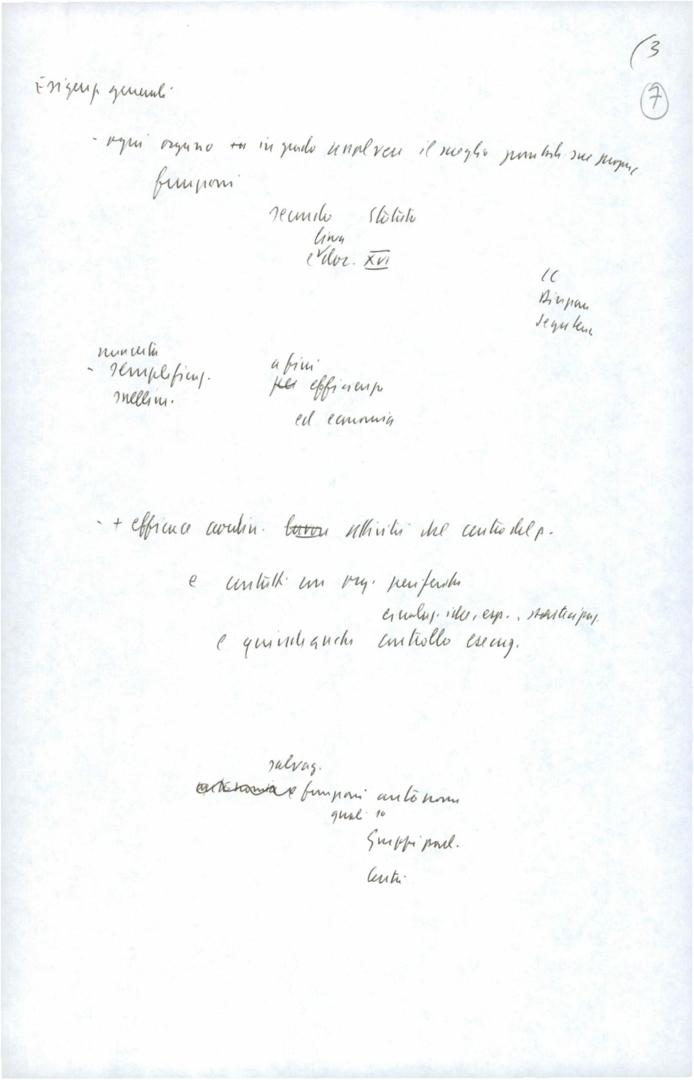 (3
7
Esigenze generali
- ogni organo in grado assolvere il meglio possibile sue proprie
funzioni
secondo Statuto
linea
e doc. XVI
CC
Direzione
Segreteria
- semplificaz.
snellim.
a fini
per efficienza
ed economia
- + efficace coordin. lavoro attività del centro del p.
e contatti con org. periferici
circolaz. idee, esp.,
e quindi anche controllo esecuz.
salvag.
autonomia e funzioni autonome
quali
Gruppi parl.
Centri